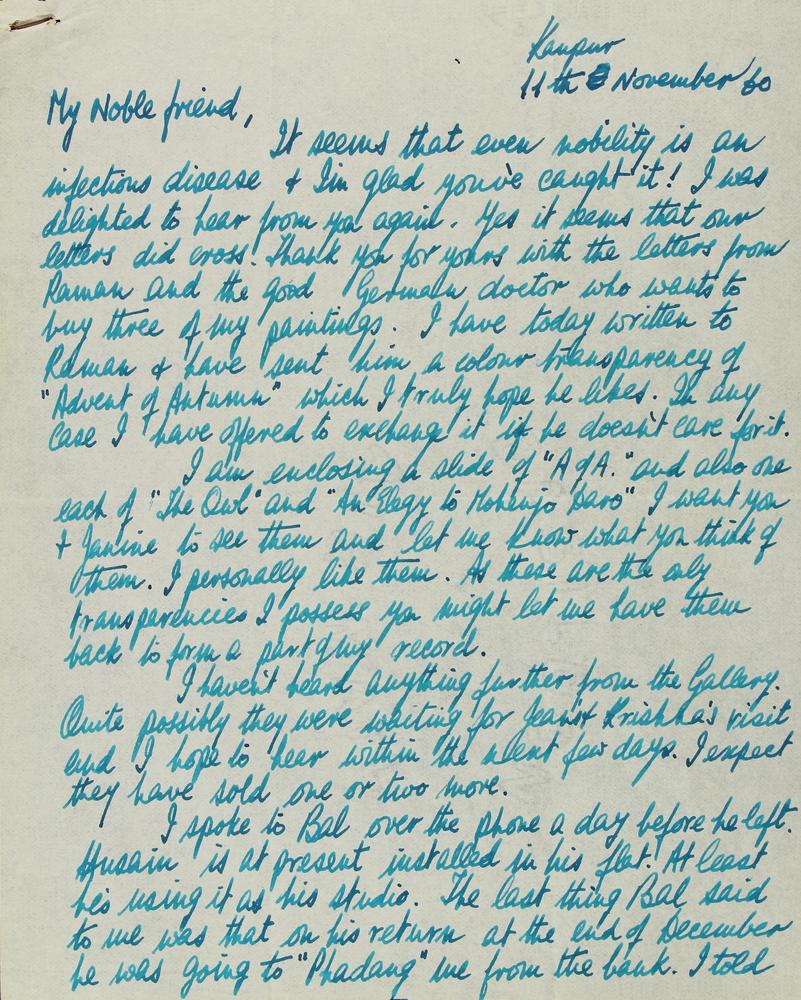 Kanpur
11th November 60
My Noble friend,
It seems that even nobility is an
infectious disease & I'm glad you've caught it! I was
delighted to hear from you again. Yes it seems that our
letters did cross. Thank you for yours with the letters from
Raman and the good German doctor who wants to
buy three of my paintings. I have today written to
Raman & have sent him a colour transparency of
"Advent of Autumn" which I truly hope he likes. In any
case I have offered to exchange it if he doesn't care for it.
I am enclosing a slide of "A of A." and also one
each of "The Owl" and "An Elegy to Mohenjo Daro" I want you
& Janine to see them and let me know what you think of
them. I personally like them. As these are the only
transparencies I possess you might let me have them
back to form a part of my record.
I haven't heard anything further from the Gallery.
Quite possibly they were waiting for Jean & Krishna's visit
and I hope to hear within the next few days. I expect
they have sold one or two more.
I spoke to Bal over the phone a day before he left.
Husain is at present installed in his flat! At least
he's using it as his studio. The last thing Bal said
to me was that on his return at the end of December
he was going to "Phadang" me from the bank. I told